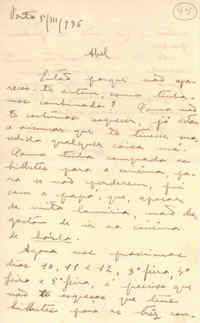 45
Porto 5/III/936
Abel
Então porque não apa-
receste ontem, como tinha-
mos combinado? Como não
te costumas esquecer, já estou
a cismar que te tivesse su-
cedido qualquer coisa má.
Como tinha comprado os
bilhetes para o cinema, pa-
ra se não perderem, fui
com o papá, que, apesar
de muita lamúria, não des-
gostou de ir ao cinema
de borla.
Agora nos proximos
dias 10, 11 e 12, 3ª feira, 4ª
feira e 5ª feira, é preciso que
não te esqueças que tens
bilhetes para os três con-